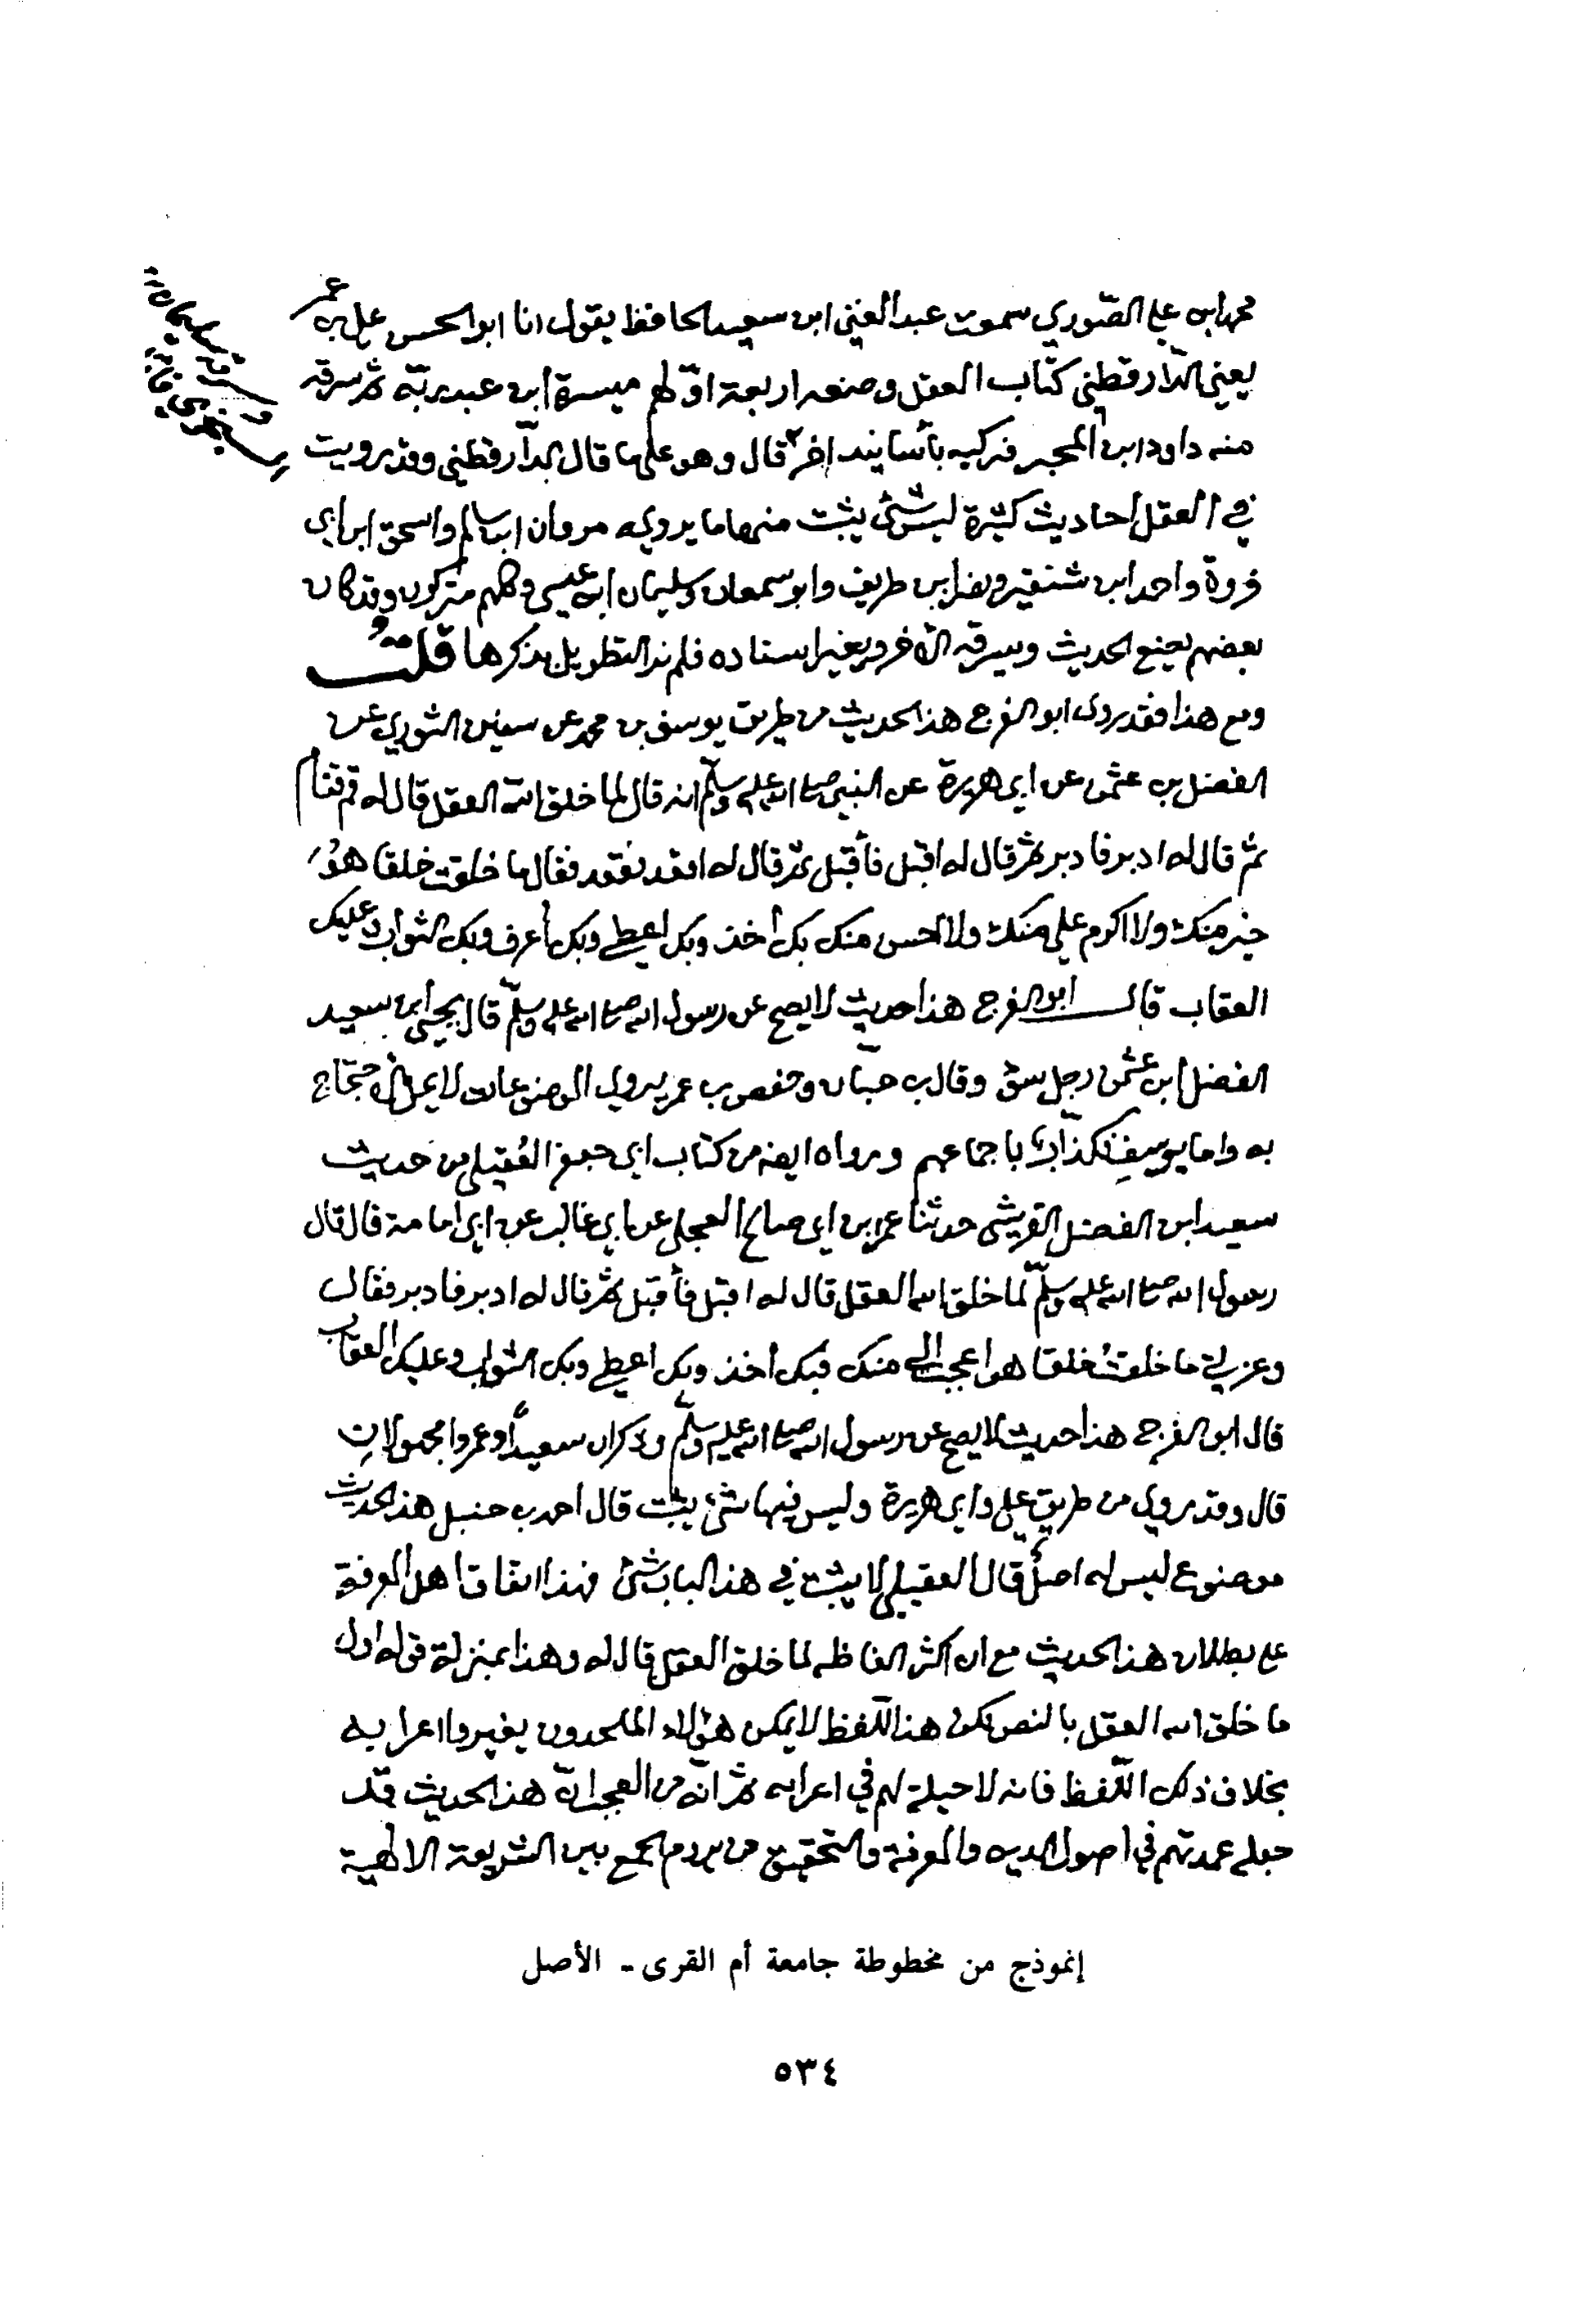 محمد ابن علي الصّوري سمعت عبد الغني ابن سعيد الحافظ يقول انا ابو الحسن علي بن عمر
يعني الدّارقطني كتاب العقل وضعه اربعة اوّلهم ميسرة ابن عبد ربّه ثم سرقه
منه داود ابن المحبر فركبه بأسانيد اخر قال وهو على ما قال الدّارقطني وقد رويت
في العقل احاديث كثيرة ليس شئ يثبت منها ما يرويه مروان ابن سالم واسحق ابن ابي
فروة واحمد ابن ونصر ابن طريف وابو سمعان وسليمان ابن عيسى وكلهم متركون وقد كان
بعضهم يضع الحديث ويسرقه الآخر ويغير اسناده فلم نر التطويل بذكرها قلتُ
ومع هذا فقد روى ابو الفرج هذا الحديث من طريق يوسف بن محمد عن سفين الثوري عن
الفضل بن عثمن عن ابي هريرة عن النبي صلى الله عليه وسلّم انه قال لما خلق الله العقل قال له قم فقام
ثم قال له ادبر فادبر ثم قال له اقبل فأقبل ثم قال له اقعد فقعد فقال ما خلقت خلقا هو
خير منك ولا اكرم علي منك ولا احسن منك بك أخذ وبك اعطي وبك أعرف وبك الثواب وعليك
العقاب قال ابو الفرج هذا حديث لا يصح عن رسول الله صلى الله عليه وسلّم قال يحيى ابن سعيد
الفضل ابن عثمن رجل سوء وقال بن حبّان وحفص بن عمر يروي الموضوعات لا يحل الاحتجاج
به واما يوسف فكذاب باجماعهم ورواه ايضه من كتاب ابي جعفر العُقيلي من حديث
سعيد ابن الفضل القريشي حدثنا عمر بن ابي صالح العجلي عن ابي غالب عن ابي امامة قال قال
رسول الله صلى الله عليه وسلّم لما خلق الله العقل قال له اقبل فأقبل ثم قال له ادبر فادبر فقال
وعزتي ما خلقت خلقا هو اعجب إلي منك فبك أخذ وبك اعطي وبك الثواب وعليك العقاب
قال ابو الفرج هذا حديث لا يصح عن رسول الله صلى الله عليه وسلّم وذكر ان سعيداً وعمروا مجهولان
قال وقد روي من طريق علي وابي هريرة وليس فيها شئ يثبت قال احمد بن حنبل هذا الحديث
موضوع ليس له اصلٌ قال العقيلي لا يثبت في هذا الباب شئ فهذا اتفاق اهل المعرفة
على بطلان هذا الحديث مع ان اكثر الفاظه لما خلق العقل قال له وهذا بمنزلة قوله اول
ما خلق الله العقل بالنص لكن هذا اللّفظ لا يمكن هؤلاء الملحدون يغيروا اعرابه
بخلاف ذلك اللّفظ فانه لا حيلة لهم في اعرابه ثم انّه من العجب انّ هذا الحديث قد
جعله عمدتهم في اصول الدين والمعرفة والتحقيق من يروم الجمع بين الشريعة الالهية
إنموذج من مخطوطة جامعة أم القرى - الأصل
٥٣٤